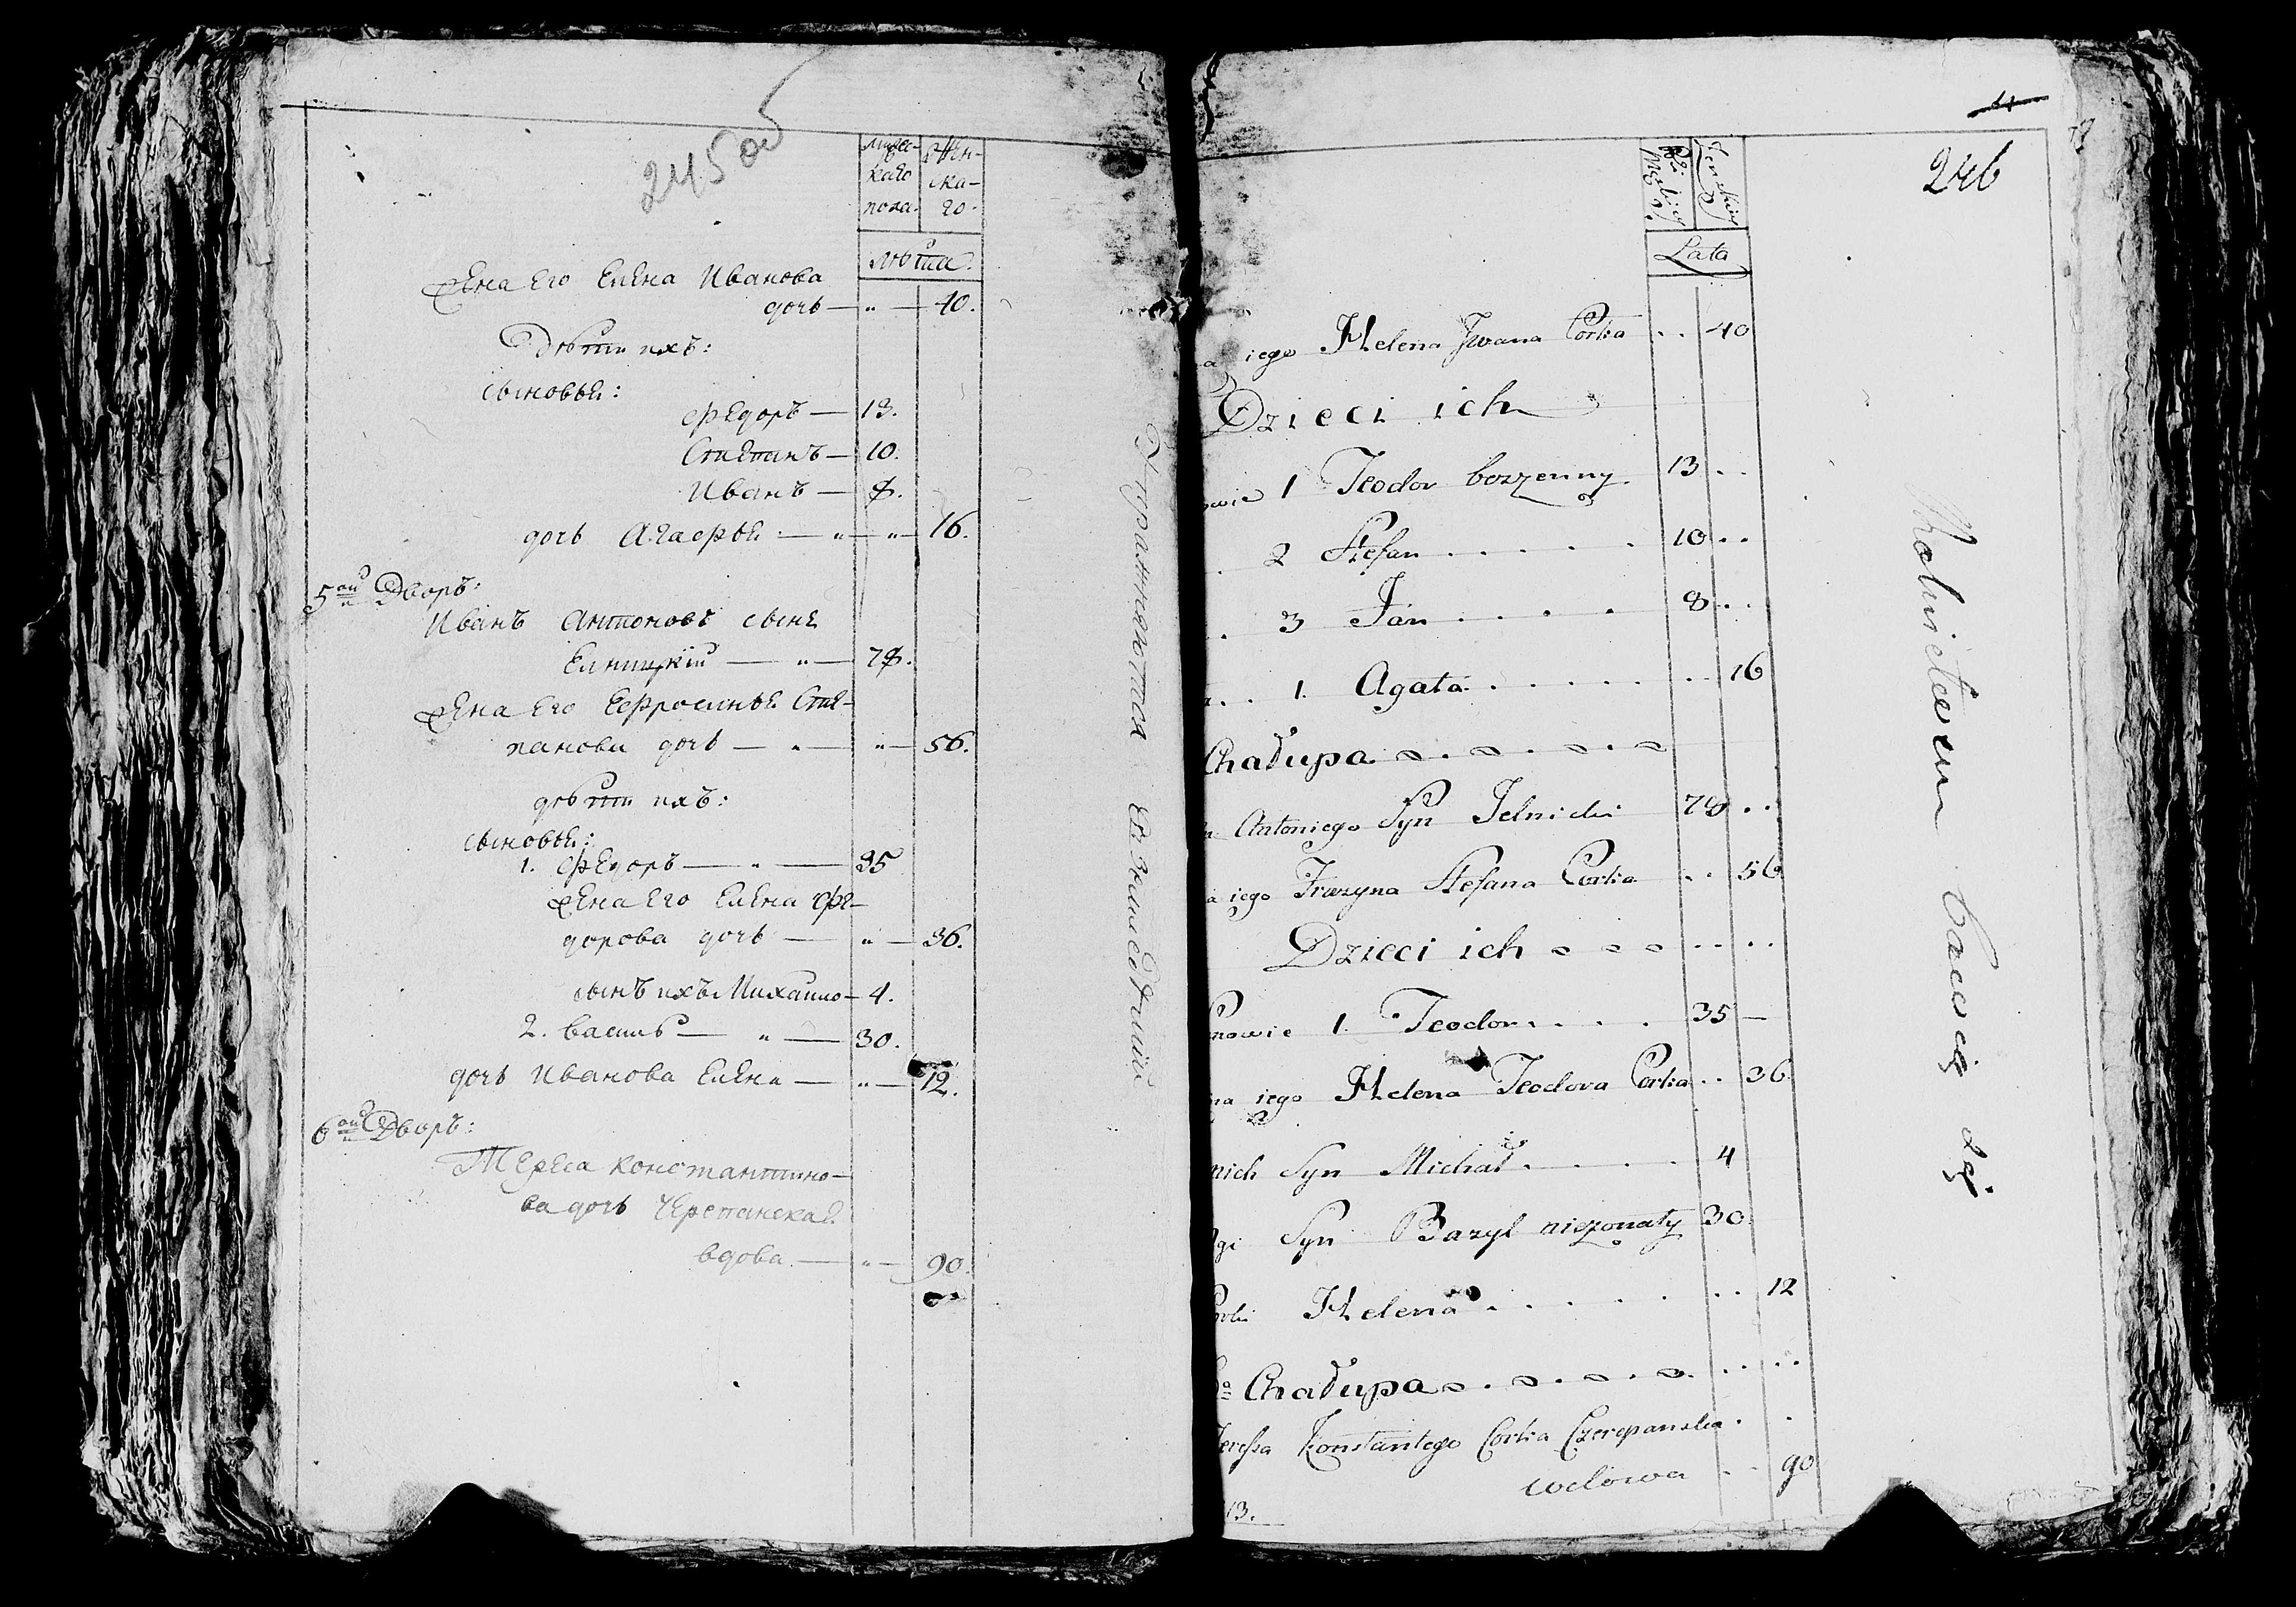 245 об
мужес-
каго
пола.
жен-
ска-
го.
лѣта.
жена его Елена Иванова
дочь — „ — 40.
Дѣти ихъ:
сыновья:
Федоръ — 13.
Степанъ — 10.
Иванъ — 8.
дочь Агафья — „ — „ — 16.
5ой Дворъ:
Иванъ Антоновъ сынъ
Елницкій — „ — 78.
жена его Ефросинья Сте-
панова дочь — „ — „ — 56.
дѣти ихъ:
сыновья:
1. Федоръ — „ — 35
жена его Елена Фе-
дорова дочь — „ — 36.
сынъ ихъ Михайло — 4.
2. Василь — „ — 30.
дочь Иванова Елена — „ — 12.
6ой Дворъ:
Тереса Константино-
ва дочь Черепанская
вдова — „ — 90.
4
246
Męskiey
Zenskiey
Lata
iego Helena Jwana Corka . . 40
Dzieci ich
1 Teodor bezzenny 13 . .
2 Stefan . . . . . 10 . .
3 Jan . . . . 8 . .
1. Agata . . . . . . . 16
Chałupa
Antoniego Syn Jelnicki 78 . .
iego Fruzyna Stefana Corka . . 56
Dzieci ich . . . .
1. Teodor . . . . 35 —
iego Helena Teodora Corka . . 36
nich Syn Michał . . . . . 4
Syn Bazyl niezonaty 30
Helena . . . . . . . 12
Chałupa . . . .
Teressa Konstantego Corka Czerepanska . .
wdowa . . 90
13.